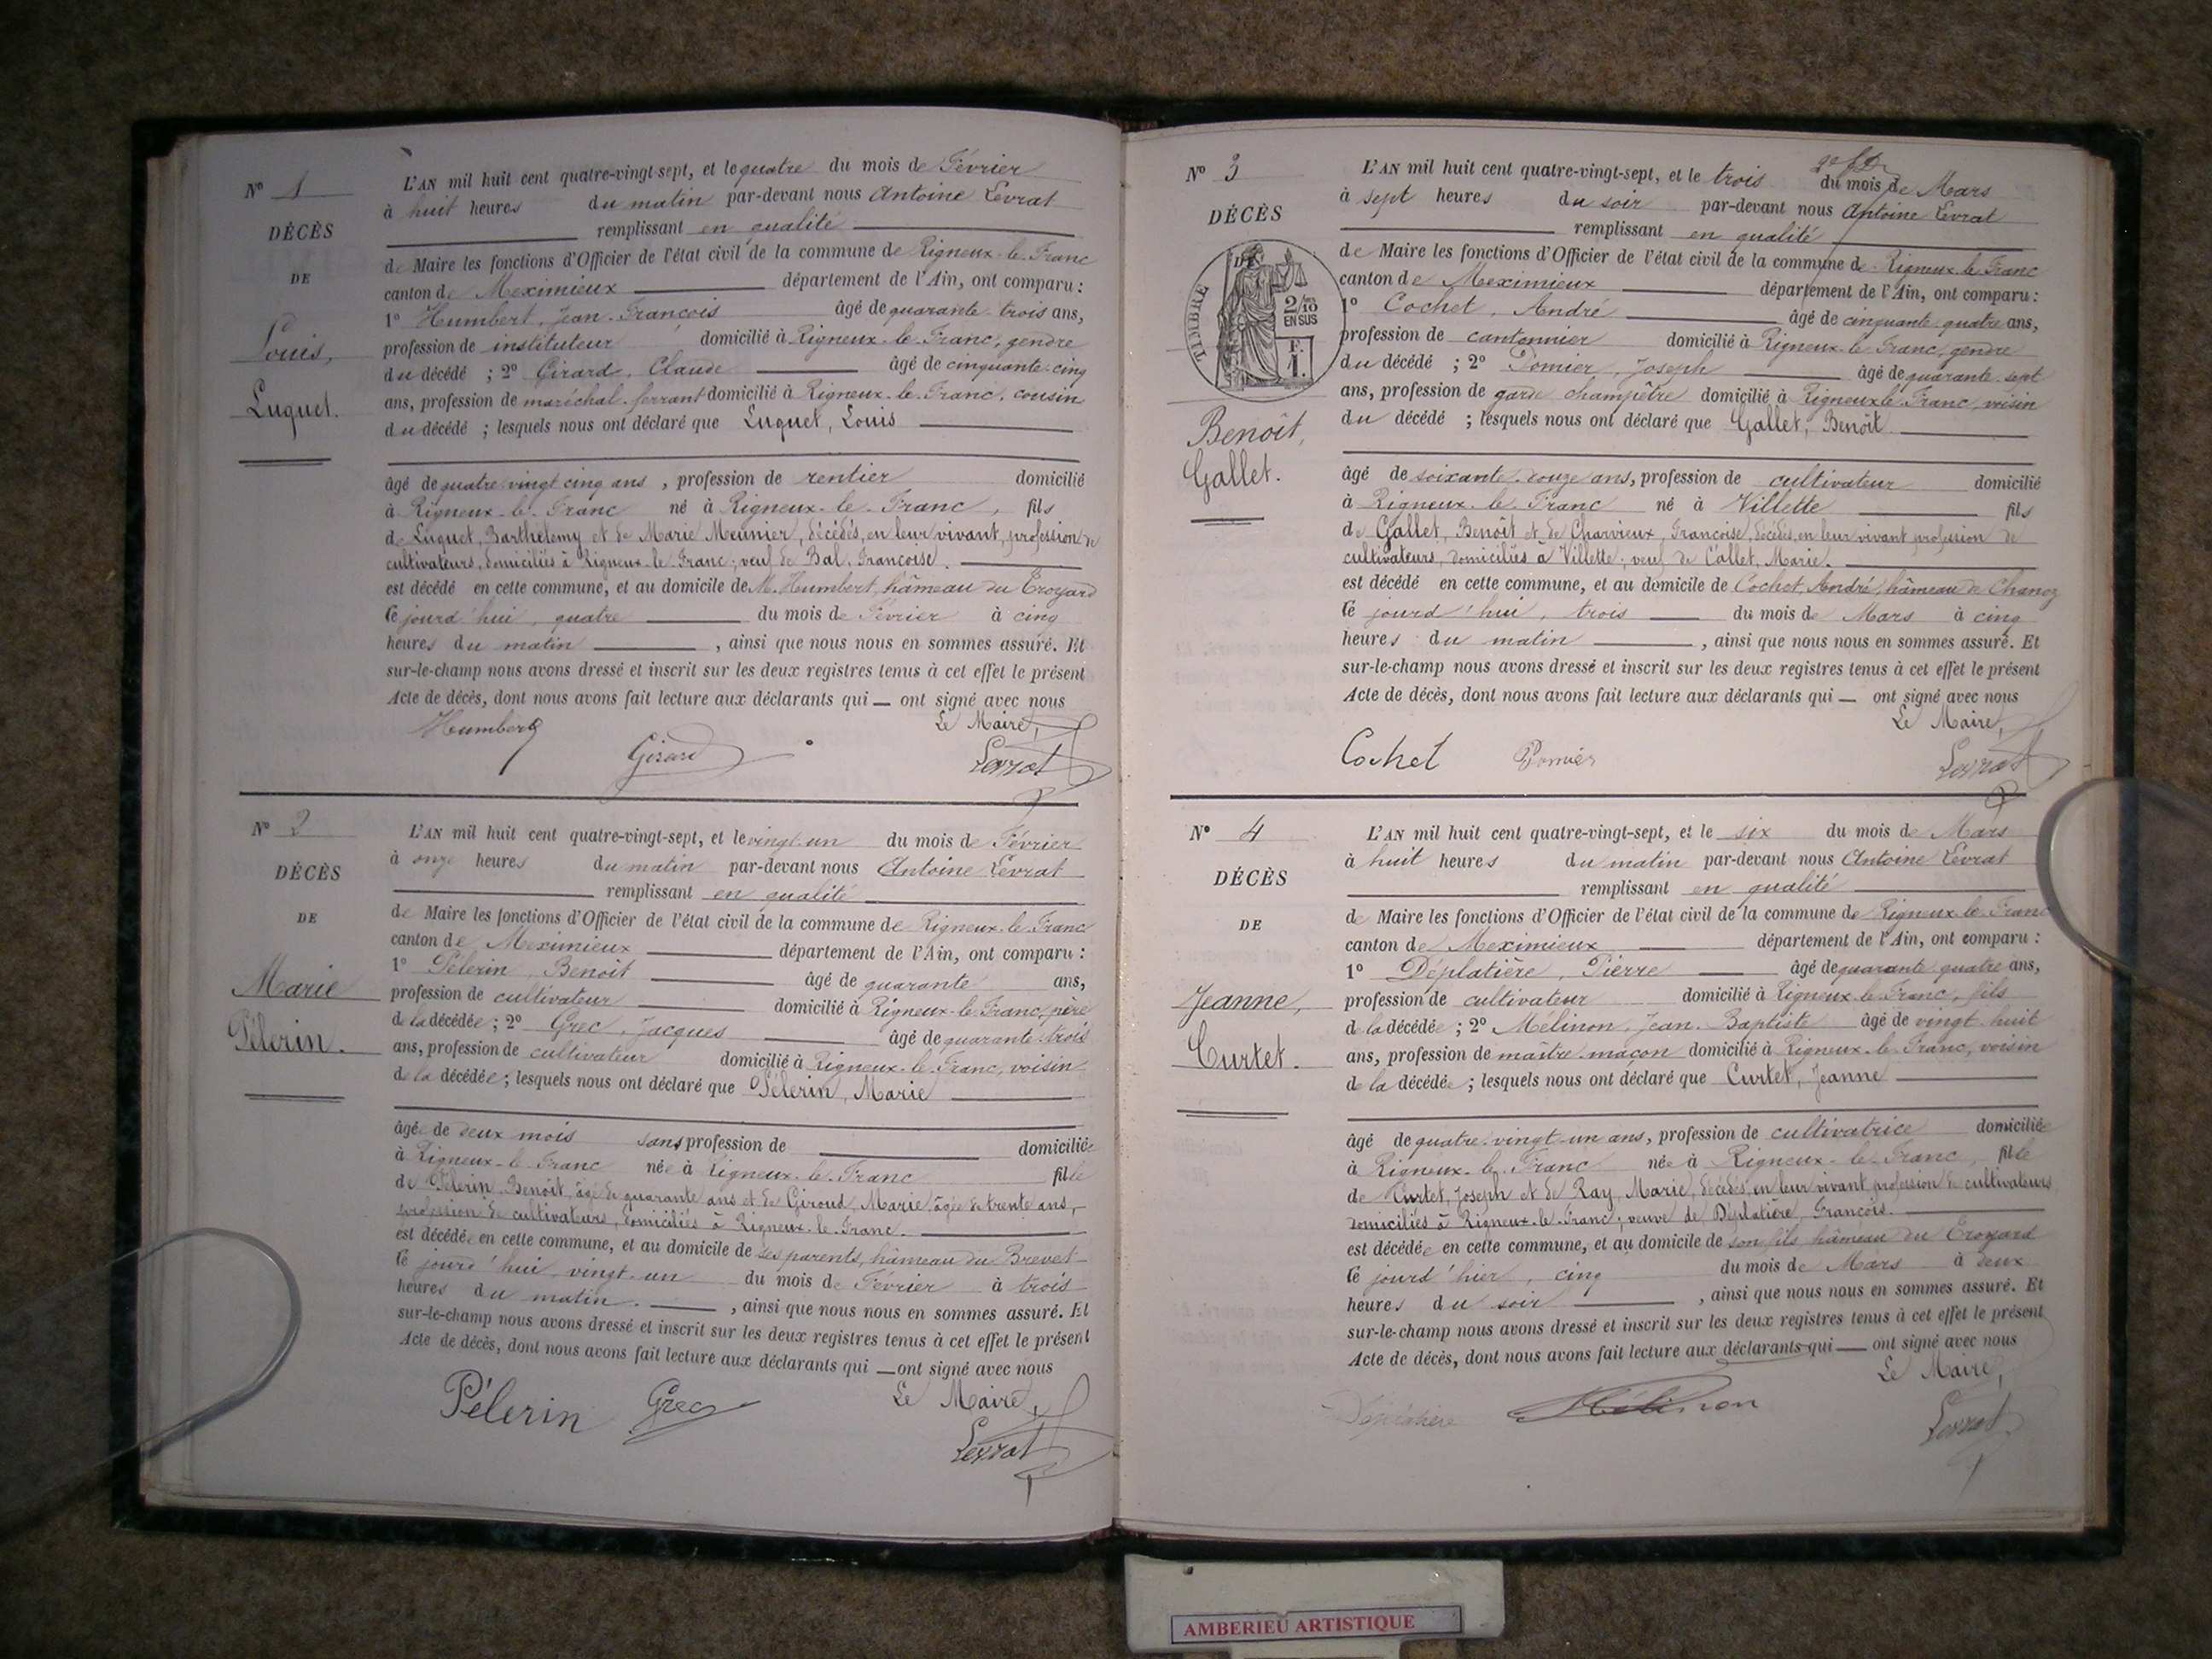 N° 1
DÉCÈS
DE
Louis,
Luquet.
L'AN mil huit cent quatre-vingt-sept, et le quatre du mois de Février
à huit heures du matin par-devant nous Antoine Levrat
remplissant en qualité
de Maire les fonctions d'Officier de l'état civil de la commune de Rigneux-le-Franc
canton de Meximieux département de l'Ain, ont comparu :
1° Humbert, Jean-François âgé de quarante-trois ans,
profession de instituteur domicilié à Rigneux-le-Franc, gendre
du décédé ; 2° Girard, Claude âgé de cinquante-cinq
ans, profession de maréchal-ferrant domicilié à Rigneux-le-Franc, cousin
du décédé ; lesquels nous ont déclaré que Luquet, Louis
âgé de quatre-vingt cinq ans, profession de rentier domicilié
à Rigneux-le-Franc né à Rigneux-le-Franc, fils
de Luquet, Barthélemy et de Marie Meunier, décédés, en leur vivant, profession de
cultivateurs, domiciliés à Rigneux-le-Franc ; veuf de Bal, Françoise.
est décédé en cette commune, et au domicile de M. Humbert, hâmeau du Croyard
le jourd'hui, quatre du mois de Février à cinq
heures du matin, ainsi que nous nous en sommes assuré. Et
sur-le-champ nous avons dressé et inscrit sur les deux registres tenus à cet effet le présent
Acte de décès, dont nous avons fait lecture aux déclarants qui — ont signé avec nous
Le Maire,
Humbert
Girard
Levrat
N° 2
DÉCÈS
DE
Marie
Pélerin.
L'AN mil huit cent quatre-vingt-sept, et le vingt-un du mois de Février
à onze heures du matin par-devant nous Antoine Levrat
remplissant en qualité
de Maire les fonctions d'Officier de l'état civil de la commune de Rigneux-le-Franc
canton de Meximieux département de l'Ain, ont comparu :
1° Pélerin, Benoit âgé de quarante ans,
profession de cultivateur domicilié à Rigneux-le-Franc, père
de la décédée ; 2° Grec, Jacques âgé de quarante-trois
ans, profession de cultivateur domicilié à Rigneux-le-Franc, voisin
de la décédée ; lesquels nous ont déclaré que Pélerin, Marie
âgée de deux mois sans profession de domiciliée
à Rigneux-le-Franc née à Rigneux-le-Franc fille
de Pélerin, Benoît, âgé de quarante ans et de Giroud, Marie, âgée de trente ans,
profession de cultivateurs, domiciliés à Rigneux-le-Franc.
est décédée en cette commune, et au domicile de ses parents, hâmeau du Brevet
le jourd'hui vingt-un du mois de Février à trois
heures du matin, ainsi que nous nous en sommes assuré. Et
sur-le-champ nous avons dressé et inscrit sur les deux registres tenus à cet effet le présent
Acte de décès, dont nous avons fait lecture aux déclarants qui — ont signé avec nous
Le Maire,
Pélerin
Grec
Levrat
N° 3
DÉCÈS
DE
TIMBRE
2/10
EN SUS
F.
1.
Benoît,
Gallet.
L'AN mil huit cent quatre-vingt-sept, et le trois du mois de Mars
à sept heures du soir par-devant nous Antoine Levrat
remplissant en qualité
de Maire les fonctions d'Officier de l'état civil de la commune de Rigneux-le-Franc
canton de Meximieux département de l'Ain, ont comparu :
1° Cochet, André âgé de cinquante-quatre ans,
profession de cantonnier domicilié à Rigneux-le-Franc, gendre
du décédé ; 2° Pomier, Joseph âgé de quarante-sept
ans, profession de garde champêtre domicilié à Rigneux-le-Franc, voisin
du décédé ; lesquels nous ont déclaré que Gallet, Benoît
âgé de soixante-douze ans, profession de cultivateur domicilié
à Rigneux-le-Franc né à Villette fils
de Gallet, Benoît et de Charvieux, Françoise, décédés, en leur vivant profession de
cultivateurs, domiciliés à Villette ; veuf de Collet, Marie.
est décédé en cette commune, et au domicile de Cochet, André, hâmeau de Chanoz
le jourd'hui, trois du mois de Mars à cinq
heures du matin, ainsi que nous nous en sommes assuré. Et
sur-le-champ nous avons dressé et inscrit sur les deux registres tenus à cet effet le présent
Acte de décès, dont nous avons fait lecture aux déclarants qui — ont signé avec nous
Le Maire,
Cochet
Pomier
Levrat
N° 4
DÉCÈS
DE
Jeanne,
Curtet.
L'AN mil huit cent quatre-vingt-sept, et le six du mois de Mars
à huit heures du matin par-devant nous Antoine Levrat
remplissant en qualité
de Maire les fonctions d'Officier de l'état civil de la commune de Rigneux-le-Franc
canton de Meximieux département de l'Ain, ont comparu :
1° Déplatière, Pierre âgé de quarante quatre ans,
profession de cultivateur domicilié à Rigneux-le-Franc, fils
de la décédée ; 2° Mélinon, Jean-Baptiste âgé de vingt-huit
ans, profession de maître-maçon domicilié à Rigneux-le-Franc, voisin
de la décédée ; lesquels nous ont déclaré que Curtet, Jeanne
âgé de quatre-vingt-un ans, profession de cultivatrice domiciliée
à Rigneux-le-Franc née à Rigneux-le-Franc, fille
de Curtet, Joseph et de Ray, Marie, décédés, en leur vivant profession de cultivateurs
domiciliés à Rigneux-le-Franc ; veuve de Déplatière, François.
est décédée en cette commune, et au domicile de son fils hâmeau du Croyard
le jourd'hier, cinq du mois de Mars à deux
heures du soir, ainsi que nous nous en sommes assuré. Et
sur-le-champ nous avons dressé et inscrit sur les deux registres tenus à cet effet le présent
Acte de décès, dont nous avons fait lecture aux déclarants qui — ont signé avec nous
Le Maire,
Déplatière
Mélinon
Levrat
AMBERIEU ARTISTIQUE